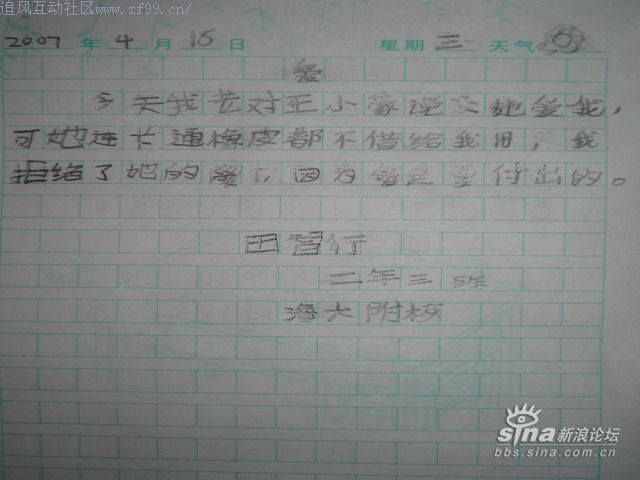 追风互动社区 www.zf99.cn/
2007 年 4 月 18 日 星期 三 天气
爱
今天我 对王小蒙说 她爱我，
可她连卡通橡皮都不借给我用，我
拒绝了她的爱，因为爱是要付出的。
田智行
二年三班
海大附校
sina 新浪论坛
bbs.sina.com.cn